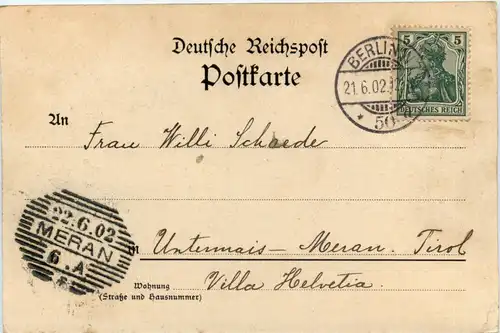 Deutsche Reichspost
Postkarte
BERLIN
21.6.02.
* 50
5 5
DEUTSCHES REICH
An
Frau Willi Schaede
22.6.02
MERAN
6.A
*
in Untermais - Meran. Tirol
Wohnung
(Straße und Hausnummer)
Villa Helvetia.